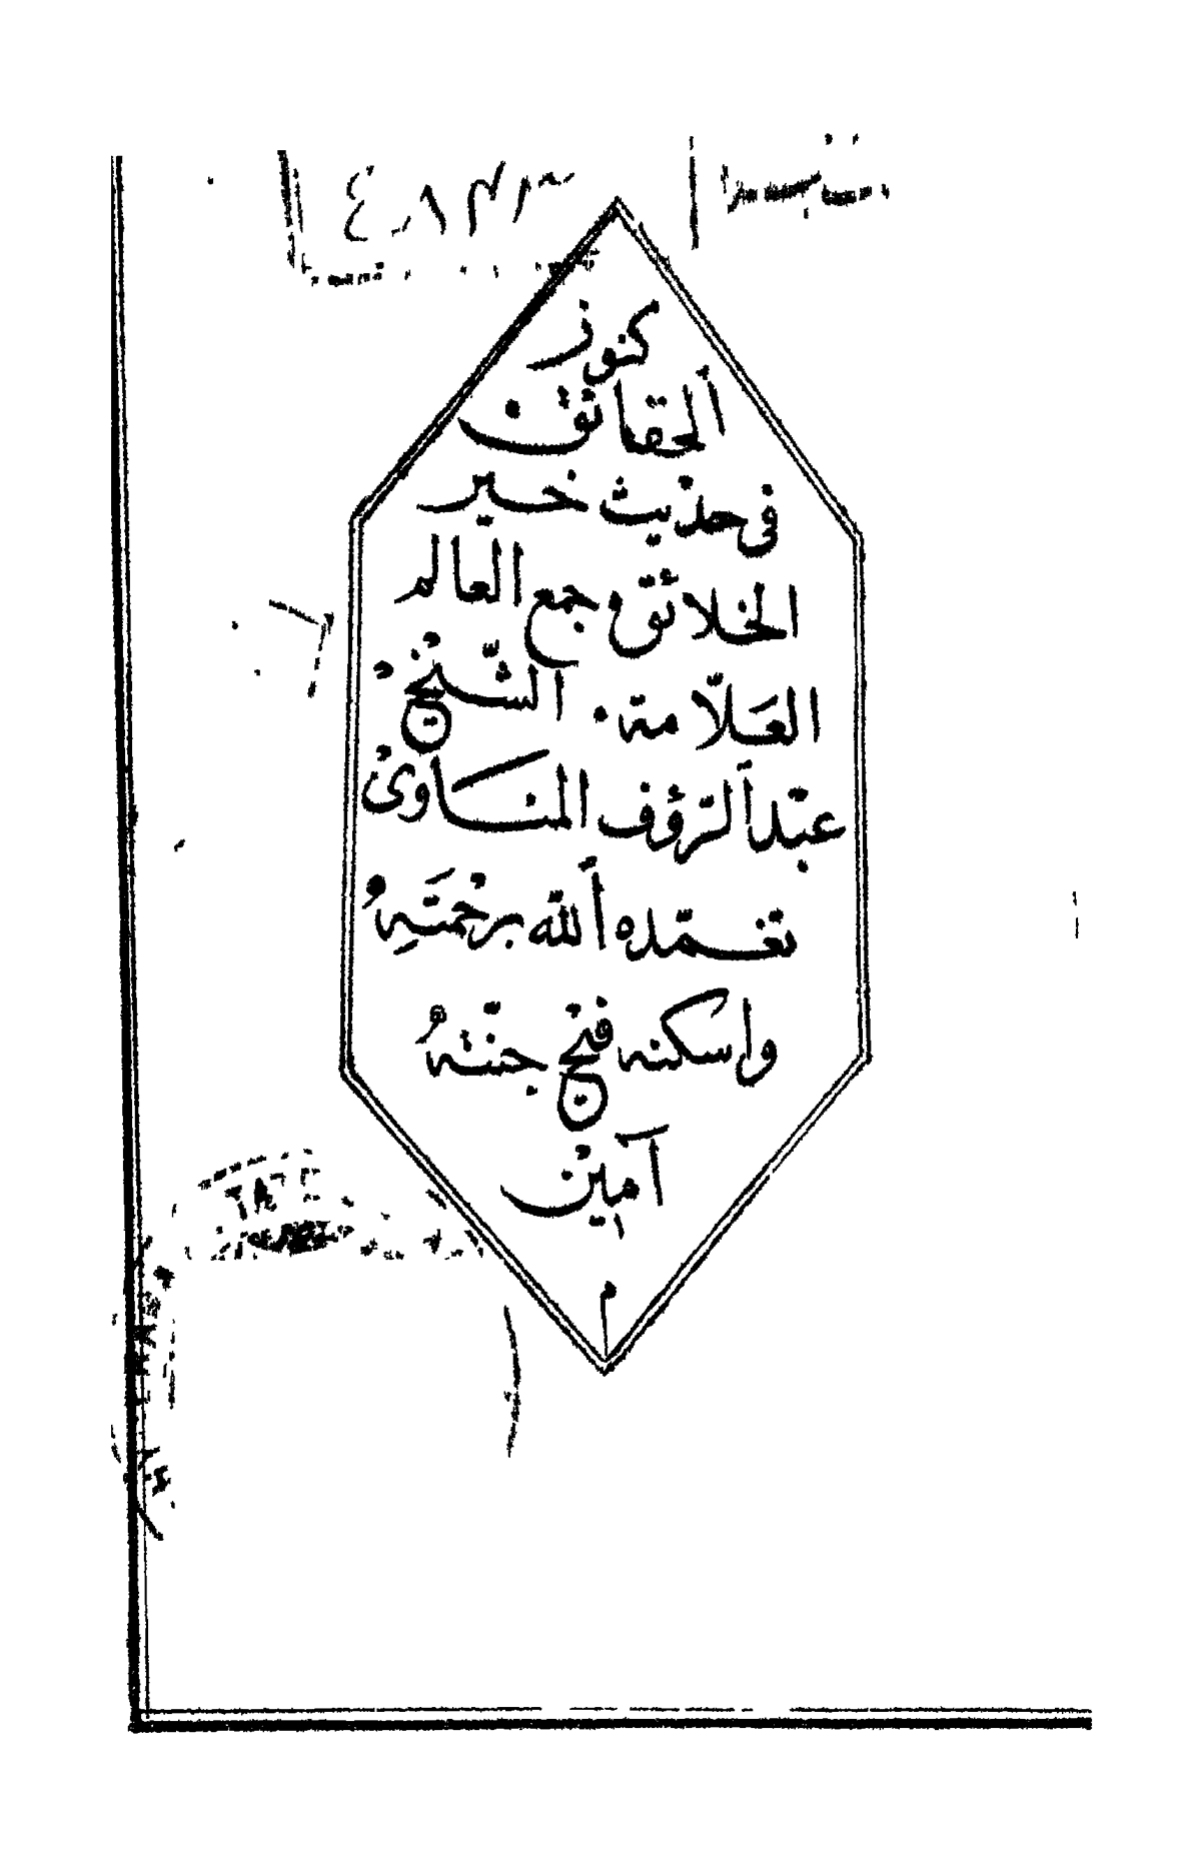 كنوز
الحقائق
فى حديث خير
الخلائق جمع العالم
العلّامة الشّيخ
عبد الرّؤف المناوى
تغمّده الله برحمته
واسكنه فسيح جنّته
آمين
م